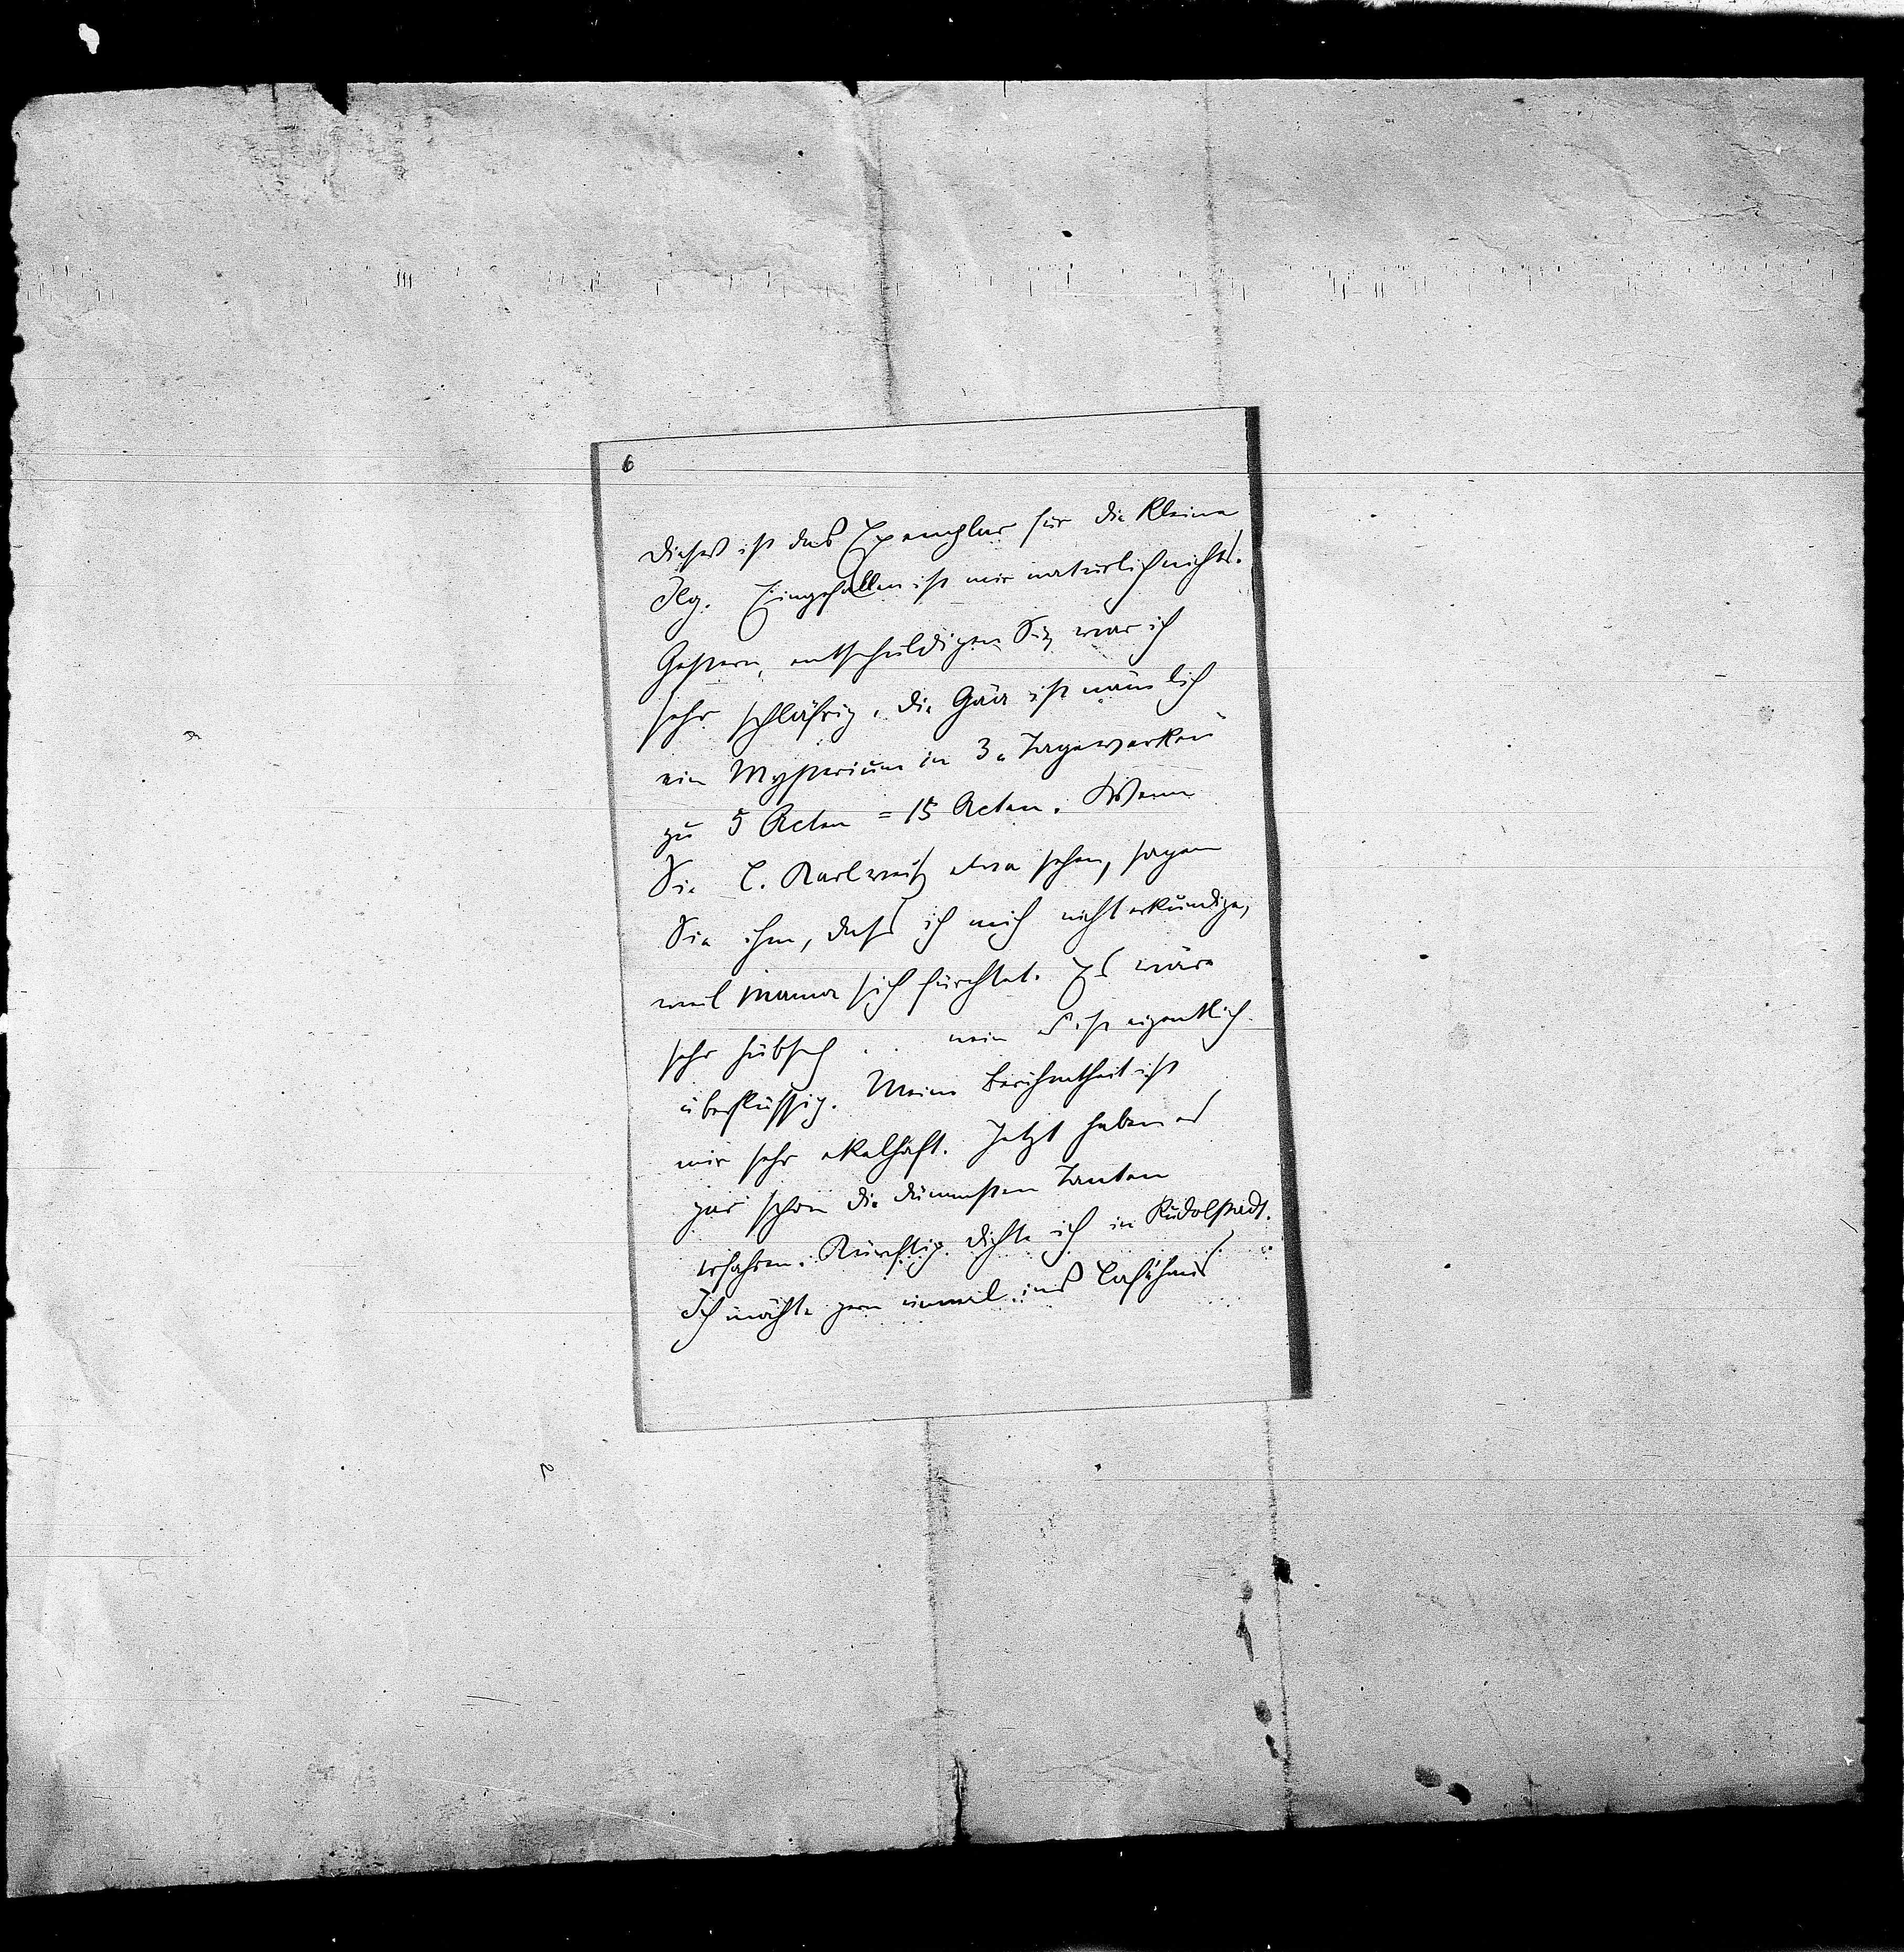 6
Dieses ist das Exemplar für die kleine
Ilg. Eingefallen ist mir natürlich nichts.
Gestern, entschuldigen Sie, war ich
sehr schläfrig, die Gäa ist nämlich
ein Mysterium in 3. Tagewerken
zu 5 Acten = 15 Acten. Wenn
Sie C. Karlweis etwa sehen, sagen
Sie ihm, dass ich mich nicht erkundige,
weil Mama sich fürchtet. Es wäre
sehr hübsch . . nein es ist eigentlich
überflüssig. Meine Berühmtheit ist
mir sehr ekelhaft. Jetzt haben es
gar schon die dümmsten Tanten
erfahren. Künftig dichte ich in Rudolstadt.
Ich möchte gern einmal ins Caféhaus